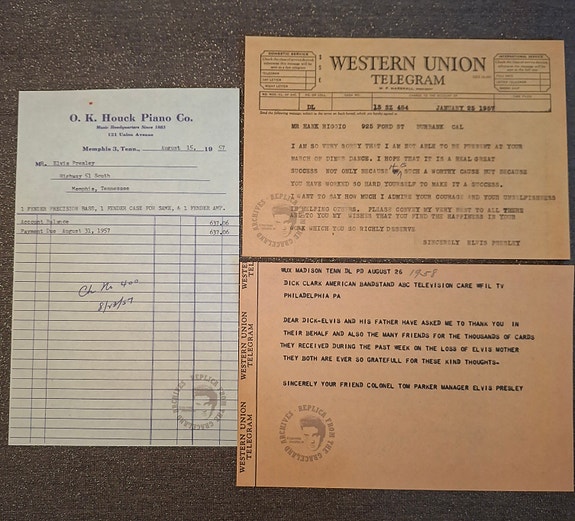 O. K. Houck Piano Co.
Music Headquarters Since 1883
121 Union Avenue
Memphis 3, Tenn., August 15, 1957
MR. Elvis Presley
Highway 51 South
Memphis, Tennessee
1 FENDER PRECISION BASS, 1 FENDER CASE FOR SAME, & 1 FENDER AMP.
Account Balance 637.06
Payment Due August 31, 1957 637.06
Ck No 400
REPLICA FROM THE GRACELAND ARCHIVES
DOMESTIC SERVICE
WESTERN UNION
TELEGRAM
INTERNATIONAL SERVICE
W. P. MARSHALL, PRESIDENT
DL 13 SZ 484 JANUARY 25 1957
MR HANK HIGGIG 925 POND ST BURBANK CAL
I AM SO VERY SORRY THAT I AM NOT ABLE TO BE PRESENT AT YOUR
MARCH OF DIMES DANCE. I HOPE THAT IT IS A REAL GREAT
SUCCESS NOT ONLY BECAUSE SUCH A WORTHY CAUSE BUT BECAUSE
YOU HAVE WORKED SO HARD YOURSELF TO MAKE IT A SUCCESS.
I WANT TO SAY HOW MUCH I ADMIRE YOUR COURAGE AND YOUR UNSELFISHNESS
IN HELPING OTHERS. PLEASE CONVEY MY VERY BEST TO ALL THERE
AND TO YOU MY WISHES THAT YOU FIND THE HAPPINESS IN YOUR
WORK WHICH YOU SO RICHLY DESERVE
SINCERELY ELVIS PRESLEY
REPLICA FROM THE GRACELAND ARCHIVES
WESTERN UNION
TELEGRAM
WESTERN UNION
TELEGRAM
WESTERN UNION
WUX MADISON TENN DL PD AUGUST 26 1958
DICK CLARK AMERICAN BANDSTAND ABC TELEVISION CARE WFIL TV
PHILADELPHIA PA
DEAR DICK-ELVIS AND HIS FATHER HAVE ASKED ME TO THANK YOU IN
THEIR BEHALF AND ALSO THE MANY FRIENDS FOR THE THOUSANDS OF CARDS
THEY RECEIVED DURING THE PAST WEEK ON THE LOSS OF ELVIS MOTHER
THEY BOTH ARE EVER SO GRATEFULL FOR THESE KIND THOUGHTS-
SINCERELY YOUR FRIEND COLONEL TOM PARKER MANAGER ELVIS PRESLEY
REPLICA FROM THE GRACELAND ARCHIVES